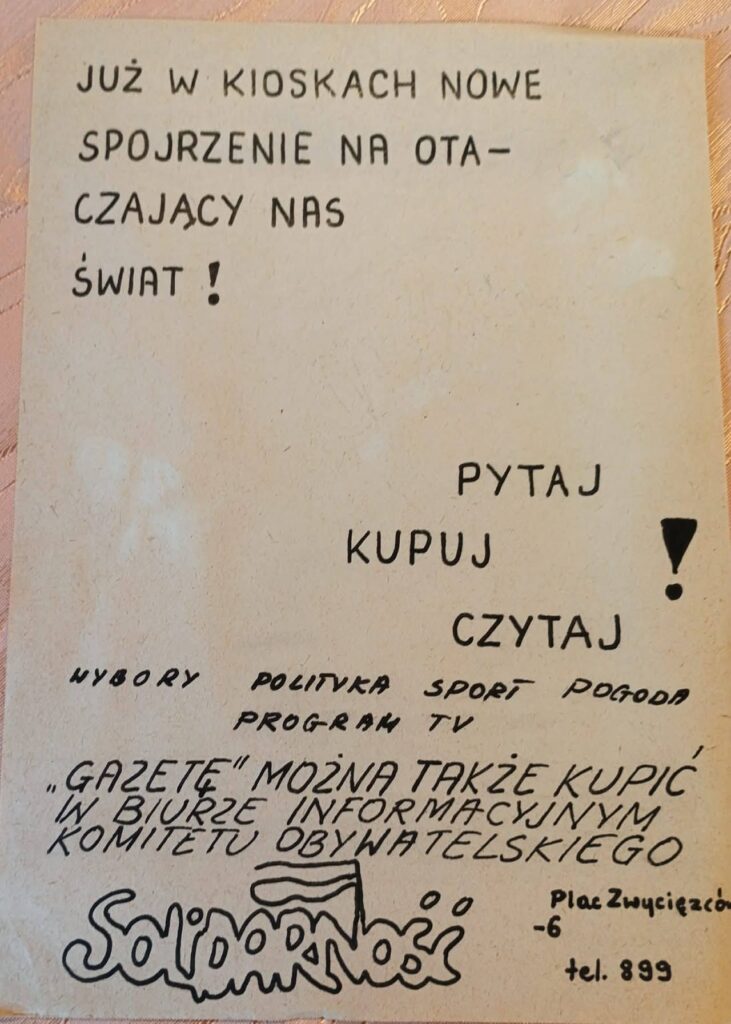 JUŻ W KIOSKACH NOWE
SPOJRZENIE NA OTA-
CZAJĄCY NAS
ŚWIAT !
PYTAJ
KUPUJ !
CZYTAJ
WYBORY POLITYKA SPORT POGODA
PROGRAM TV
„GAZETĘ” MOŻNA TAKŻE KUPIĆ
W BIURZE INFORMACYJNYM
KOMITETU OBYWATELSKIEGO
SOLIDARNOŚĆ
Plac Zwycięzców
-6
tel. 899